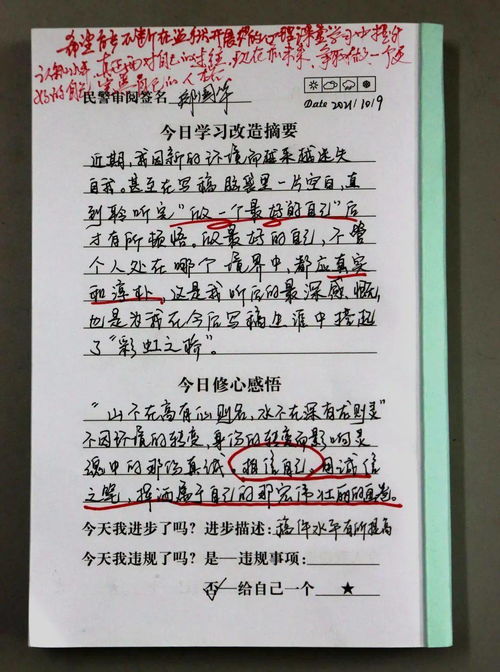 希望你能不断在监狱开展的心理课堂学习中提升
认知水平，真正面对自己的过往、现在和未来，争取做一个更
好的自己，
民警审阅签名
Date 2021/10/9
今日学习改造摘要
近期，我因新的环境而越来越迷失
自我。甚至在写稿脑袋里一片空白，直
到聆听完“做一个最好的自己”后
才有所顿悟。做最好的自己，不管
个人处在哪个境界中，都应真实
和淳朴，这是我听后的最深感慨，
也是为我在今后写稿之谁中搭起
了“彩虹之桥”。
今日修心感悟
“山不在高有仙则名，水不在深有龙则灵”
不因环境的转变，身份的转变而影响灵
魂中的那份真诚。相信自己，用诚信
之笔，挥洒属于自己的那宏伟壮丽的
今天我进步了吗？进步描述：稿件水平有所提高
今天我违规了吗？是—违规事项：
否—给自己一个 ★